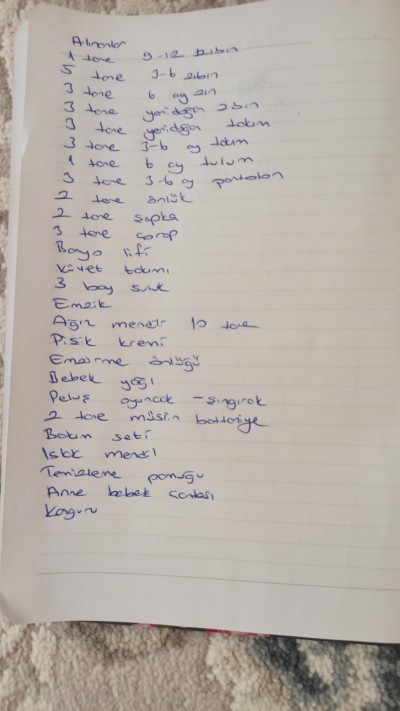 Alınanlar
1 tane 9-12 zıbın
5 tane 3-6 zıbın
3 tane 6 ay zıbın
3 tane yenidoğan zıbın
3 tane yenidoğan takım
3 tane 3-6 ay takım
1 tane 6 ay tulum
3 tane 3-6 ay pantolon
2 tane önlük
2 tane şapka
3 tane çorap
Banyo lifi
Küvet takımı
3 boy suluk
Emzik
Ağız mendil 10 tane
Pişik kremi
Emzirme önlüğü
Bebek yağı
Peluş oyuncak - çıngırak
2 tane müslin battaniye
Bakım seti
Islak mendil
Temizleme pamuğu
Anne bebek çantası
Kanguru